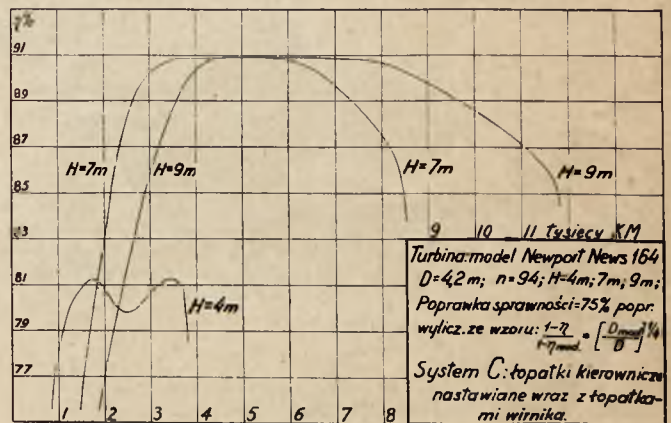 η%
91
89
87
85
83
81
79
77
H=7m
H=9m
H=7m
H=9m
H=4m
1 2 3 4 5 6 7 8
9 10 11 tysięcy KM
Turbina: model Newport News 164
D=4,2m; n=94; H=4m; 7m; 9m;
Poprawka sprawności=75% popr.
wylicz. ze wzoru: 1-η / 1-η mod. = [D mod / D]^1/4
System C: łopatki kierownicze
nastawiane wraz z łopatka-
mi wirnika.